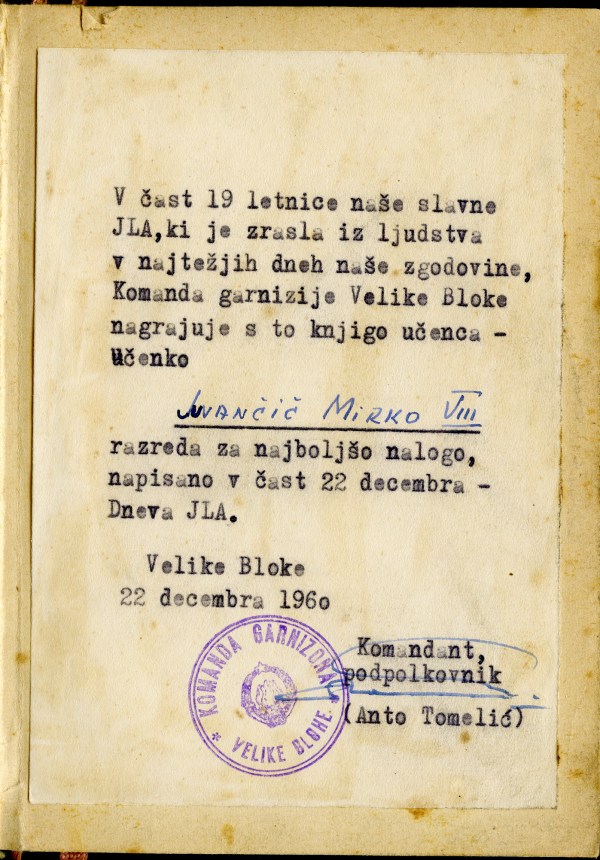 V čast 19 letnice naše slavne
JLA,ki je zrasla iz ljudstva
v najtežjih dneh naše zgodovine,
Komanda garnizije Velike Bloke
nagrajuje s to knjigo učenca -
učenko
Ivančič Mirko VIII
razreda za najboljšo nalogo,
napisano v čast 22 decembra -
Dneva JLA.
Velike Bloke
22 decembra 196o
Komandant,
podpolkovnik
(Anto Tomelić)
* KOMANDA GARNIZONA *
VELIKE BLOKE